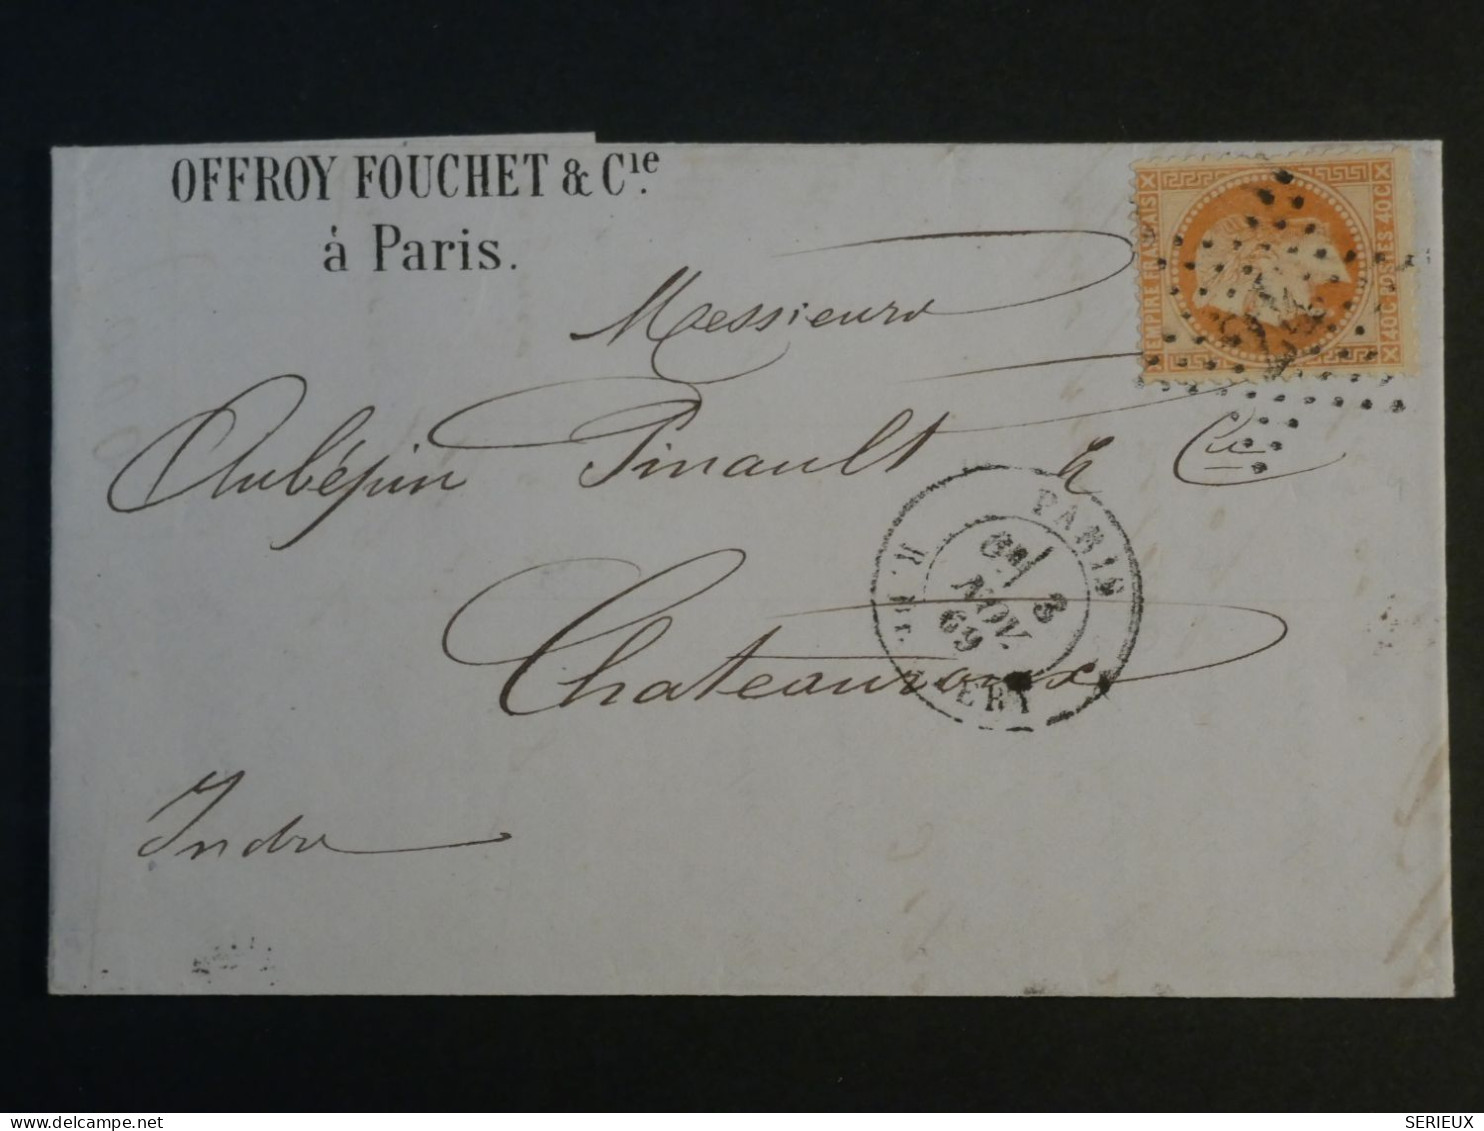 OFFROY FOUCHET & Cie.
à Paris.
EMPIRE FRANÇAIS
40C POSTES 40C
Messieurs
Aubépin Pinault & Cie
PARIS
3
NOV.
69
Chateauroux
Indre
www.delcampe.net
SERIEUX